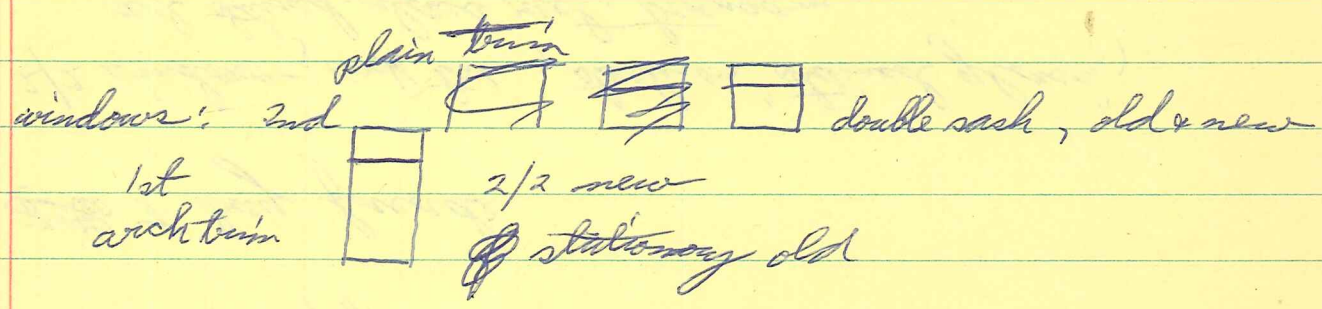 plain trim
windows: 2nd double sash, old & new
1st 2/2 new
arch trim stationary old